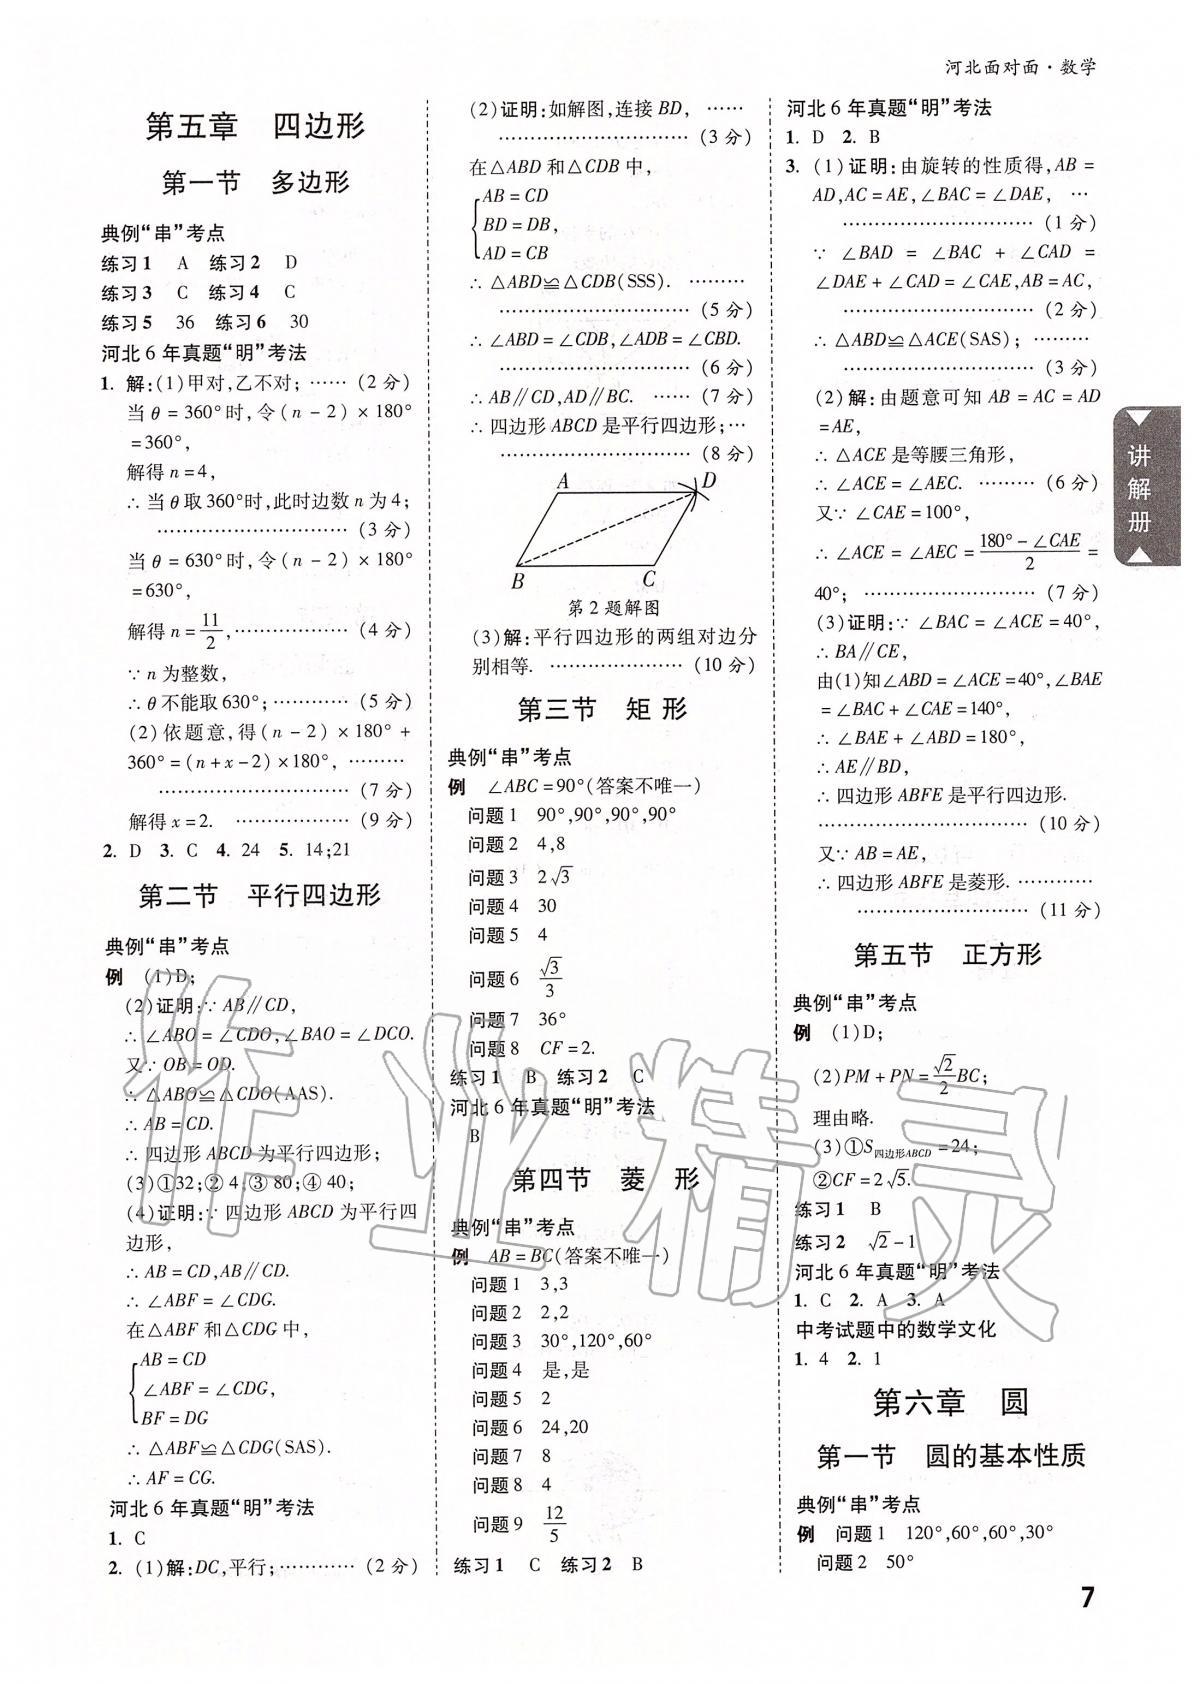 河北面对面·数学
第五章 四边形
第一节 多边形
典例“串”考点
练习1 A 练习2 D
练习3 C 练习4 C
练习5 36 练习6 30
河北6年真题“明”考法
1. 解:(1)甲对,乙不对; …… (2分)
当θ=360°时,令(n-2)×180°
=360°,
解得n=4,
∴当θ取360°时,此时边数n为4;
………………………… (3分)
当θ=630°时,令(n-2)×180°
=630°,
解得n=11/2,……………… (4分)
∵n为整数,
∴θ不能取630°;………… (5分)
(2)依题意,得(n-2)×180°+
360°=(n+x-2)×180°, ………
………………………… (7分)
解得x=2. ……………… (9分)
2. D 3. C 4. 24 5. 14;21
第二节 平行四边形
典例“串”考点
例 (1)D;
(2)证明:∵AB∥CD,
∴∠ABO=∠CDO,∠BAO=∠DCO.
又∵OB=OD.
∴△ABO≌△CDO(AAS).
∴AB=CD.
∴四边形ABCD为平行四边形;
(3)①32;②4;③80;④40;
(4)证明:∵四边形ABCD为平行四
边形,
∴AB=CD,AB∥CD.
∴∠ABF=∠CDG.
在△ABF和△CDG中,
AB=CD
∠ABF=∠CDG,
BF=DG
∴△ABF≌△CDG(SAS).
∴AF=CG.
河北6年真题“明”考法
1. C
2. (1)解:DC,平行;………… (2分)
(2)证明:如解图,连接BD, ……
………………………… (3分)
在△ABD和△CDB中,
AB=CD
BD=DB,
AD=CB
∴△ABD≌△CDB(SSS). ………
………………………… (5分)
∴∠ABD=∠CDB,∠ADB=∠CBD.
………………………… (6分)
∴AB∥CD,AD∥BC. …… (7分)
∴四边形ABCD是平行四边形;…
………………………… (8分)
A D
B C
第2题解图
(3)解:平行四边形的两组对边分
别相等. ………………… (10分)
第三节 矩形
典例“串”考点
例 ∠ABC=90°(答案不唯一)
问题1 90°,90°,90°,90°
问题2 4,8
问题3 2√3
问题4 30
问题5 4
问题6 √3/3
问题7 36°
问题8 CF=2.
练习1 B 练习2 C
河北6年真题“明”考法
B
第四节 菱形
典例“串”考点
例 AB=BC(答案不唯一)
问题1 3,3
问题2 2,2
问题3 30°,120°,60°
问题4 是,是
问题5 2
问题6 24,20
问题7 8
问题8 4
问题9 12/5
练习1 C 练习2 B
河北6年真题“明”考法
1. D 2. B
3. (1)证明:由旋转的性质得,AB=
AD,AC=AE,∠BAC=∠DAE, …
………………………… (1分)
∵∠BAD=∠BAC+∠CAD=
∠DAE+∠CAD=∠CAE,AB=AC,
………………………… (2分)
∴△ABD≌△ACE(SAS); ………
………………………… (3分)
(2)解:由题意可知AB=AC=AD
=AE,
∴△ACE是等腰三角形,
∴∠ACE=∠AEC. ……… (6分)
又∵∠CAE=100°,
∴∠ACE=∠AEC=(180°-∠CAE)/2=
40°; ……………………… (7分)
(3)证明:∵∠BAC=∠ACE=40°,
∴BA∥CE,
由(1)知∠ABD=∠ACE=40°,∠BAE
=∠BAC+∠CAE=140°,
∴∠BAE+∠ABD=180°,
∴AE∥BD,
∴四边形ABFE是平行四边形.
………………………… (10分)
又∵AB=AE,
∴四边形ABFE是菱形. …………
……………………… (11分)
第五节 正方形
典例“串”考点
例 (1)D;
(2)PM+PN=√2/2BC;
理由略.
(3)①S四边形ABCD=24;
②CF=2√5.
练习1 B
练习2 √2-1
河北6年真题“明”考法
1. C 2. A 3. A
中考试题中的数学文化
1. 4 2. 1
第六章 圆
第一节 圆的基本性质
典例“串”考点
例 问题1 120°,60°,60°,30°
问题2 50°
讲解册
7
作业精灵